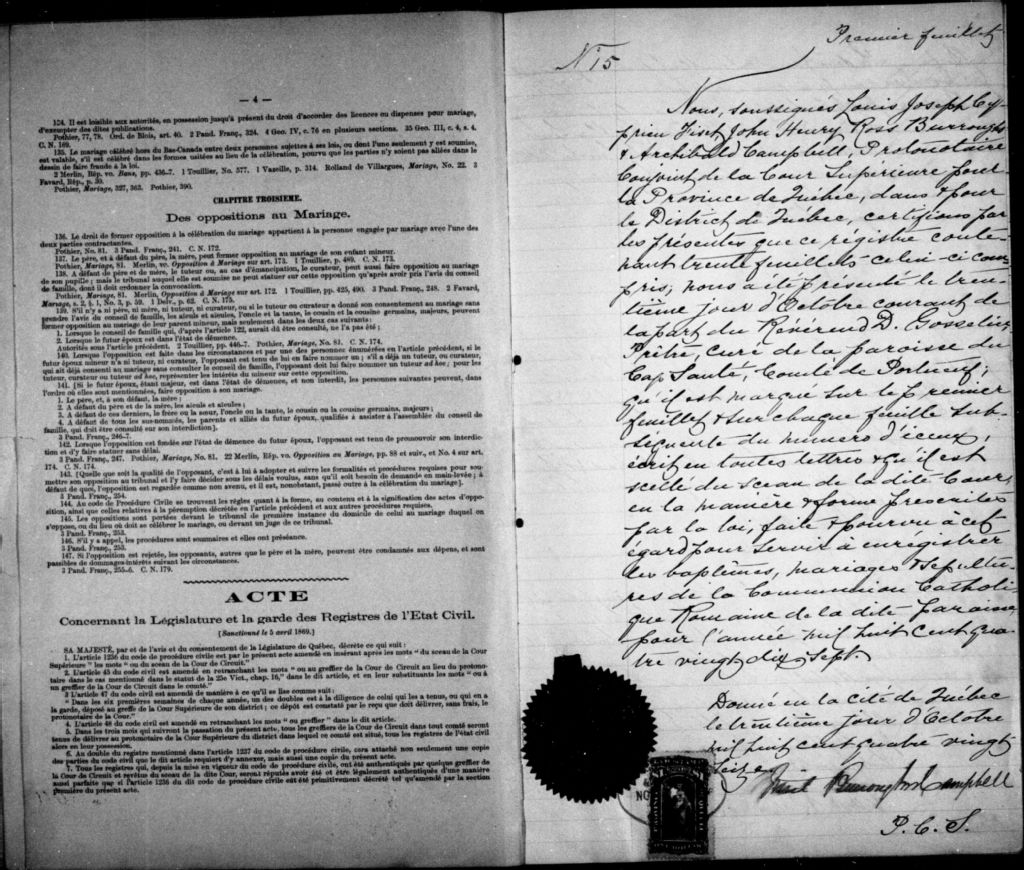 — 4 —
134. Il est loisible aux autorités, en possession jusqu'à présent du droit d'accorder des licences ou dispenses pour mariage,
d'exempter des dites publications.
Pothier, 77, 78. Ord. de Blois, art. 40. 2 Pand. Franç., 324. 4 Geo. IV, c. 76 en plusieurs sections. 35 Geo. III, c. 4, s. 4.
C. N. 169.
135. Le mariage célébré hors du Bas-Canada entre deux personnes sujettes à ses lois, ou dont l'une seulement y est soumise,
est valable, s'il est célébré dans les formes usitées au lieu de la célébration, pourvu que les parties n'y soient pas allées dans le
dessin de faire fraude à la loi.
2 Merlin, Rép. vo. Bans, pp. 436-7. 1 Touillier, No. 577. 1 Vazeille, p. 314. Rolland de Villargues, Mariage, No. 22. 3
Favard, Rép., p. 39.
Pothier, Mariage, 327, 363. Pothier, 390.
CHAPITRE TROISIEME.
Des oppositions au Mariage.
136. Le droit de former opposition à la célébration du mariage appartient à la personne engagée par mariage avec l'une des
deux parties contractantes.
Pothier, No. 81. 3 Pand. Franç., 241. C. N. 172.
137. Le père, et à défaut du père, la mère, peut former opposition au mariage de son enfant mineur.
Pothier, Mariage, 81. Merlin, vo. Opposition à Mariage sur art. 173. 1 Touillier, p. 489. C. N. 173.
138. A défaut de père et de mère, le tuteur ou, au cas d'émancipation, le curateur, peut aussi faire opposition au mariage
de son pupille; mais le tribunal auquel elle est soumise ne peut statuer sur cette opposition qu'après avoir pris l'avis du conseil
de famille, dont il doit ordonner la convocation.
Pothier, Mariage, 81. Merlin, Opposition à Mariage sur art. 172. 1 Touillier, pp. 425, 490. 3 Pand. Franç., 248. 2 Favard,
Mariage, s. 2, § 1, No. 3, p. 59. 1 Delv., p. 62. C. N. 175.
139. S'il n'y a ni père, ni mère, ni tuteur, ni curateur, ou si le tuteur ou curateur a donné son consentement au mariage sans
prendre l'avis du conseil de famille, les aïeuls et aïeules, l'oncle et la tante, le cousin et la cousine germains, majeurs, peuvent
former opposition au mariage de leur parent mineur, mais seulement dans les deux cas suivants:
1. Lorsque le conseil de famille qui, d'après l'article 122, aurait dû être consulté, ne l'a pas été;
2. Lorsque le futur époux est dans l'état de démence.
Autorités sous l'article précédent. 2 Touillier, pp. 446-7. Pothier, Mariage, No. 81. C. N. 174.
140. Lorsque l'opposition est faite dans les circonstances et par une des personnes énumérées en l'article précédent, si le
futur époux mineur n'a ni tuteur, ni curateur, l'opposant est tenu de lui en faire nommer un; s'il a déjà un tuteur, ou curateur,
qui ait déjà consenti au mariage sans consulter le conseil de famille, l'opposant doit lui faire nommer un tuteur ad hoc; pour les
tuteur, curateur ou tuteur ad hoc, représenter les intérêts du mineur sur cette opposition.
141. [Si le futur époux, étant majeur, est dans l'état de démence, et non interdit, les personnes suivantes peuvent, dans
l'ordre où elles sont mentionnées, faire opposition à son mariage.
1. Le père, et, à son défaut, la mère;
2. A défaut du père et de la mère, les aïeuls et aïeules;
3. A défaut de ces derniers, le frère ou la sœur, l'oncle ou la tante, le cousin ou la cousine germains, majeurs;
4. A défaut de tous les sus-nommés, les parents et alliés du futur époux, qualifiés à assister à l'assemblée du conseil de
famille, qui doit être consulté sur son interdiction].
3 Pand. Franç., 246-7.
142. Lorsque l'opposition est fondée sur l'état de démence du futur époux, l'opposant est tenu de promouvoir son interdic-
tion et d'y faire statuer sans délai.
3 Pand. Franç., 247. Pothier, Mariage, No. 81. 22 Merlin, Rép. vo. Opposition au Mariage, pp. 88 et suiv., et No. 4 sur art.
174. C. N. 174.
143. [Quelle que soit la qualité de l'opposant, c'est à lui à adopter et suivre les formalités et procédures requises pour sou-
mettre son opposition au tribunal et l'y faire décider sous les délais voulus, sans qu'il soit besoin de demande en main-levée; à
défaut de quoi, l'opposition est regardée comme non avenu, et il est, nonobstant, passé outre à la célébration du mariage].
3 Pand. Franç., 254.
144. Au code de Procédure Civile se trouvent les règles quant à la forme, au contenu et à la signification des actes d'oppo-
sition, ainsi que celles relatives à la péremption décrétée en l'article précédent et aux autres procédures requises.
145. Les oppositions sont portées devant le tribunal de première instance du domicile de celui au mariage duquel on
s'oppose, ou du lieu où doit se célébrer le mariage, ou devant un juge de ce tribunal.
3 Pand. Franç., 253.
146. S'il y a appel, les procédures sont sommaires et elles ont préséance.
3 Pand. Franç., 253.
147. Si l'opposition est rejetée, les opposants, autres que le père et la mère, peuvent être condamnés aux dépens, et sont
passibles de dommages-intérêts suivant les circonstances.
3 Pand. Franç., 255-6. C. N. 179.
ACTE
Concernant la Législature et la garde des Registres de l'Etat Civil.
[Sanctionné le 5 avril 1869.]
SA MAJESTÉ, par et de l'avis et du consentement de la Législature de Québec, décrète ce qui suit:
1. L'article 1236 du code de procédure civile est par le présent acte amendé en insérant après les mots "du sceau de la Cour
Supérieure" les mots "ou du sceau de la Cour de Circuit."
2. L'article 45 du code civil est amendé en retranchant les mots "ou au greffier de la Cour de Circuit au lieu du protono-
taire dans le cas mentionné dans le statut de la 25e Vict., chap. 16," dans le dit article, et en leur substituants les mots "ou à
un greffier de la Cour de Circuit dans le comté."
3 L'article 47 du code civil est amendé de manière à ce qu'il se lise comme suit:
"Dans les six premières semaines de chaque année, un des doubles est à la diligence de celui qui les a tenus, ou qui en a
la garde, déposé au greffe de la Cour Supérieure de son district; ce dépôt est constaté par le reçu que doit délivrer, sans frais, le
protonotaire de la Cour."
4. L'article 48 du code civil est amendé en retranchant les mots "ou greffier" dans le dit article.
5. Dans les trois mois qui suivront la passation du présent acte, tous les greffiers de la Cour de Circuit dans tout comté seront
tenus de délivrer au protonotaire de la Cour Supérieure du district dans lequel ce comté est situé, tous les registres de l'état civil
alors en leur possession.
6. Au double du registre mentionné dans l'article 1237 du code de procédure civile, sera attaché non seulement une copie
des parties du code civil que le dit article requiert d'y annexer, mais aussi une copie du présent acte.
7. Tous les registres qui, depuis la mise en vigueur du code de procédure civile, ont été authentiqués par quelques greffier de
la Cour de Circuit et revêtus du sceau de la dite Cour, seront réputés avoir été et être légalement authentiqués d'une manière
aussi parfaite que si l'article 1236 du dit code de procédure civile eut été primitivement décrété tel qu'amendé par la section
première du présent acte.
Premier feuillet
No 15
Nous, soussignés Louis Joseph Cy-
prien Fiset, John Henry Ross Burroughs
& Archibald Campbell, Protonotaire
Conjoint de la Cour Superieure pour
la Province de Québec, dans & pour
le District de Québec, certifions par
les présentes que ce régistre conte-
nant trente feuillets celui-ci com-
pris, nous a été présenté le tren-
tième jour d'Octobre courant de
la part du Révérend D. Gosselin,
Ptre, curé de la paroisse du
Cap Santé, Comté de Portneuf;
qu'il est marqué sur le premier
feuillet & sur chaque feuille sub-
séquente du numero d'iceux,
écrit en toutes lettres & qu'il est
scellé du sceau de la dite Cour,
en la manière & forme prescrites
par la loi, faite & pourvu à cet
égard pour servir à enrégistrer
les baptêmes, mariages & sépultu-
res de la Communion Catholi-
que Romaine de la dite Paroisse
pour l'année mil huit cent qua-
tre vingt dix Sept.
Donné en la Cité de Québec
le trentième jour d'Octobre
mil huit cent quatre vingt
Seize
Fiset Burroughs & Campbell
P. C. S.